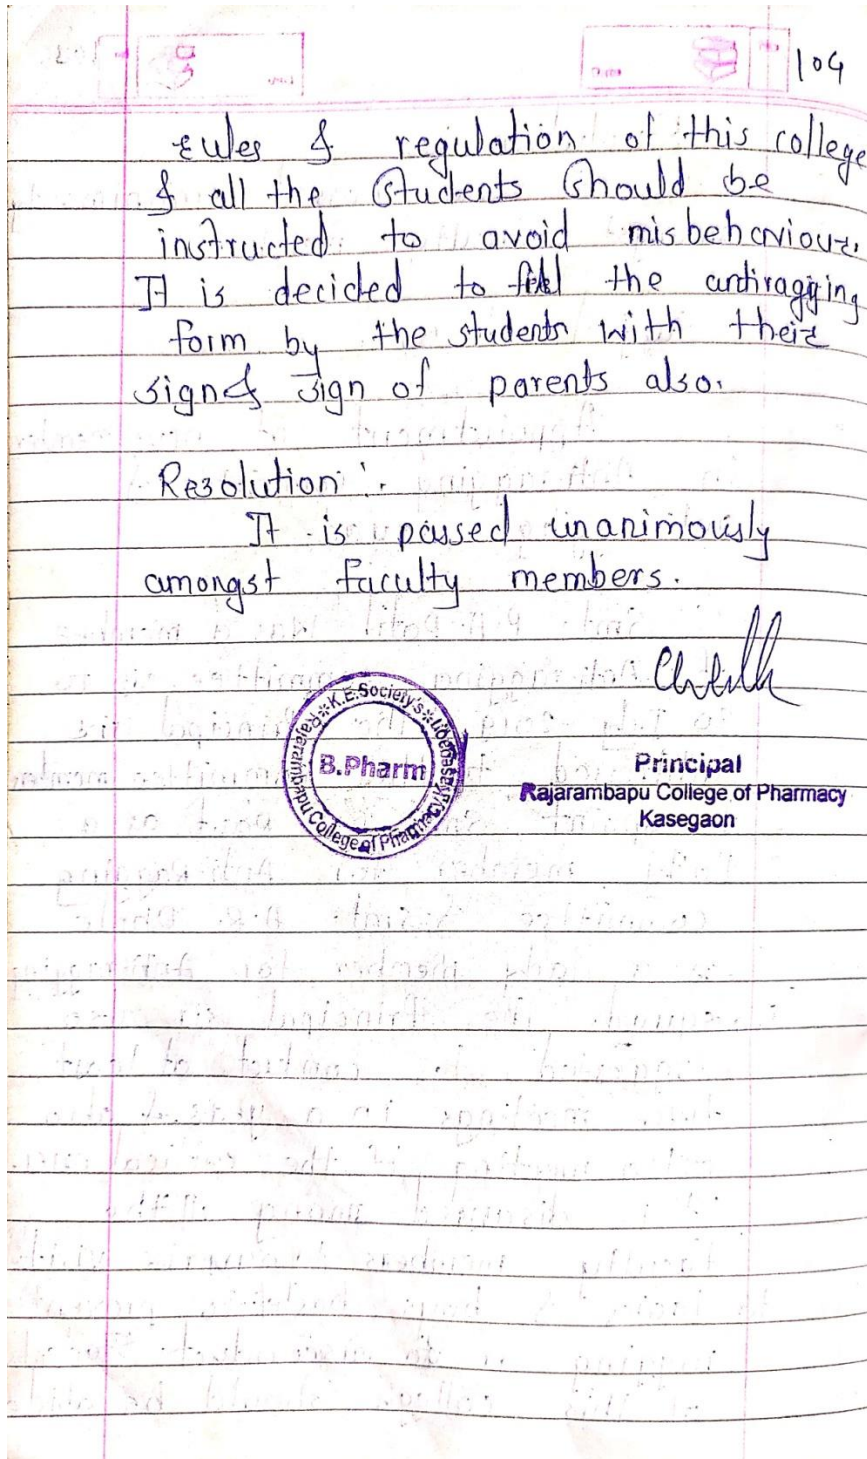 104
rules & regulation of this college
& all the students should be
instructed to avoid misbehaviour.
It is decided to fill the antiragging
form by the students with their
sign & sign of parents also.
Resolution :-
It is passed unanimously
amongst faculty members.
K.E.Society's
Rajarambapu College of Pharmacy, Kasegaon
B.Pharm
Principal
Rajarambapu College of Pharmacy
Kasegaon